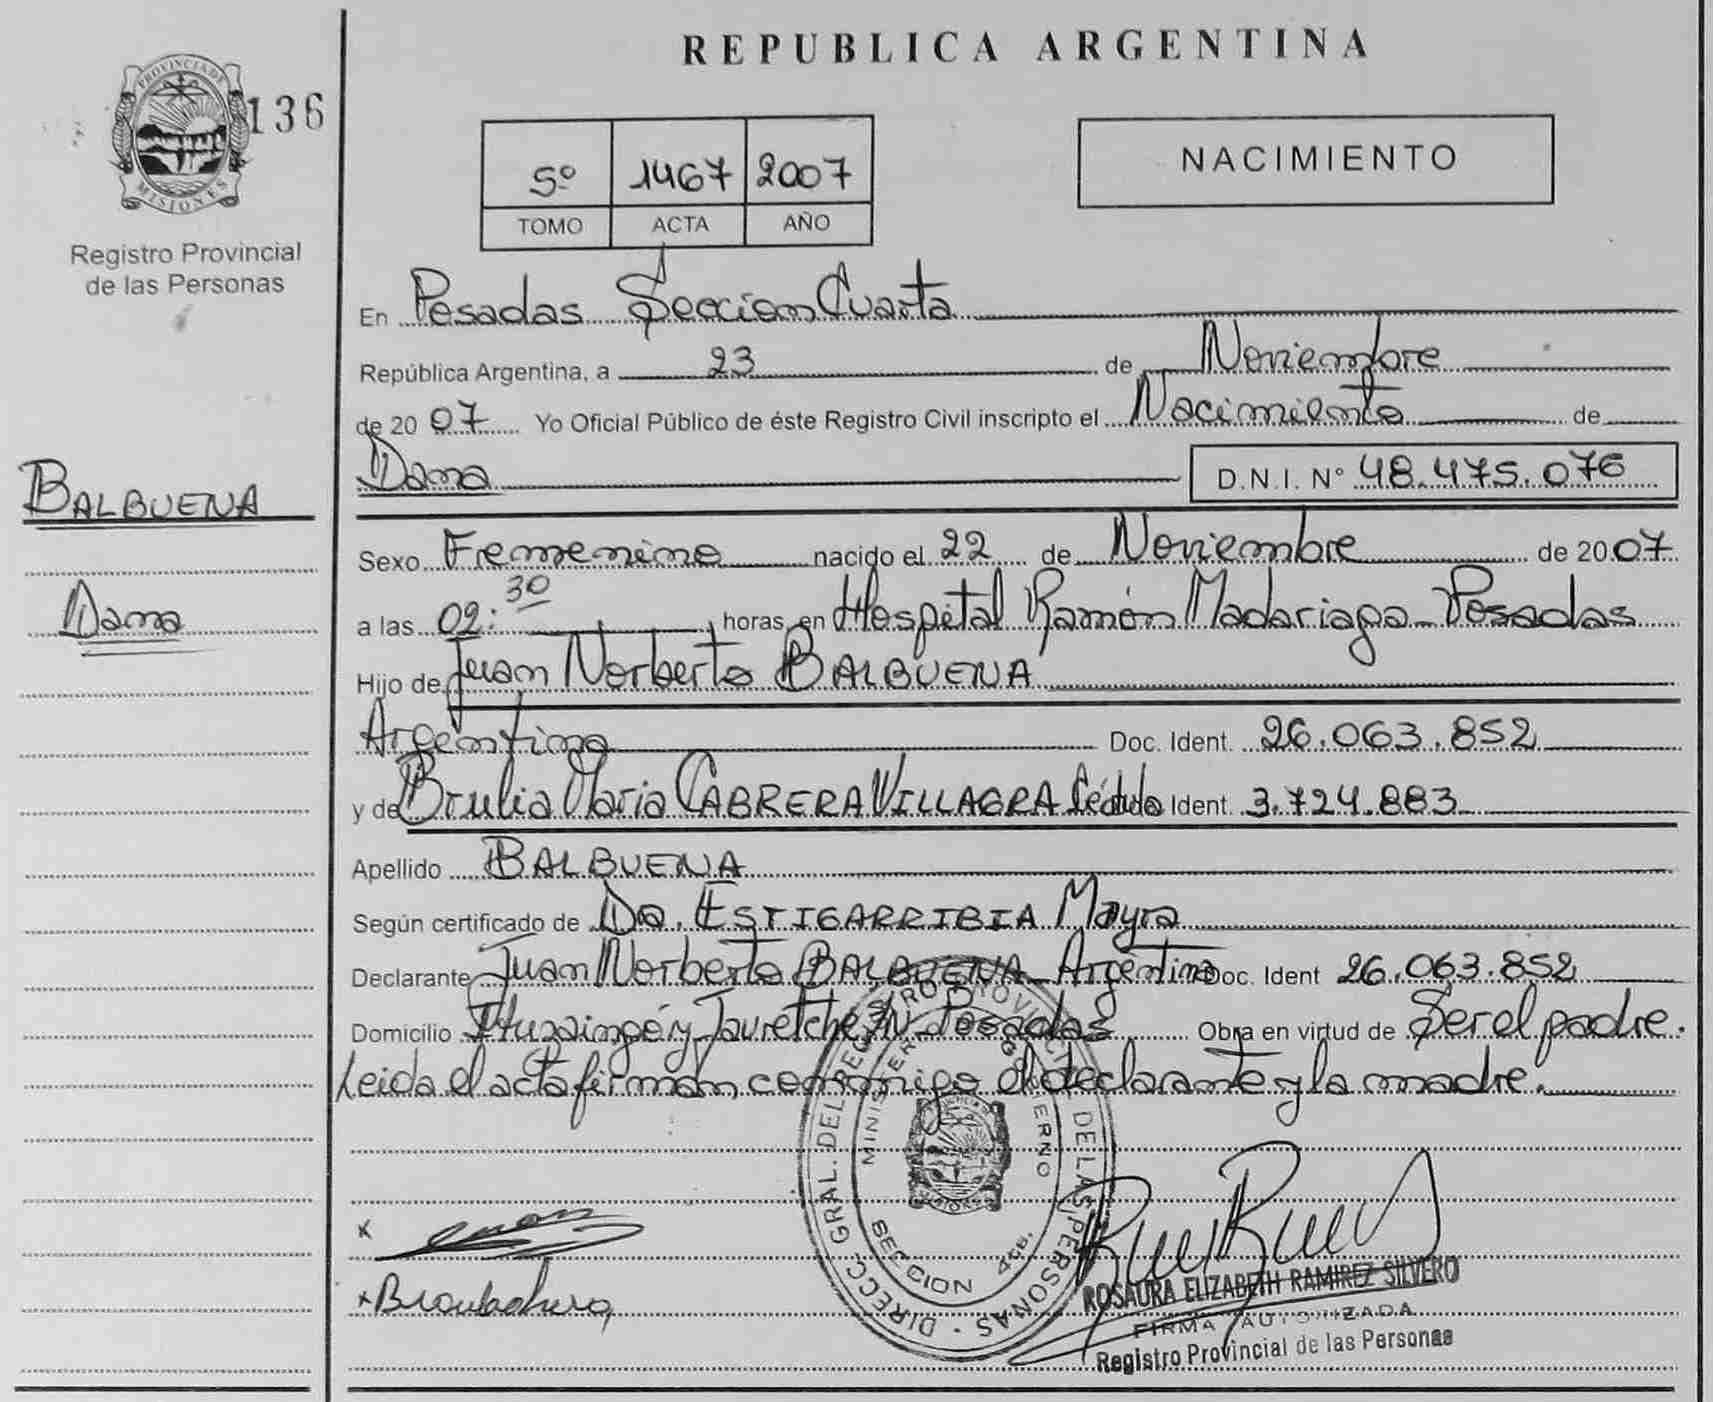 REPUBLICA ARGENTINA
PROVINCIA DE
MISIONES
136
Registro Provincial
de las Personas
5º 1467 2007
TOMO ACTA AÑO
NACIMIENTO
En Posadas Seccion Cuarta
República Argentina, a 23 de Noviembre
de 2007 Yo Oficial Público de éste Registro Civil inscripto el Nacimiento de
Dana D.N.I. Nº 48.475.076
BALBUENA
Dana
Sexo Femenino nacido el 22 de Noviembre de 2007
a las 02:30 horas en Hospital Ramón Madariaga Posadas
Hijo de Juan Norberto BALBUENA
Argentino Doc. Ident. 26.063.852
y de Maria CABRERA VILLAGRA Cédula Ident. 3.724.883
Apellido BALBUENA
Según certificado de Da. ESTIGARRIBIA Mayra
Declarante Juan Norberto BALBUENA Argentino Doc. Ident 26.063.852
Domicilio Ituzaingó y Jauretche S/N Posadas Obra en virtud de Ser el padre.
Leida el acta firman, conmigo el declarante y la madre.
DIRECC. GRAL. DEL REGISTRO PROVINCIAL DE LAS PERSONAS
MINISTERIO GOBIERNO
SECCION 4ta.
x
x
ROSAURA ELIZABETH RAMIREZ SILVERO
FIRMA AUTORIZADA
Registro Provincial de las Personas